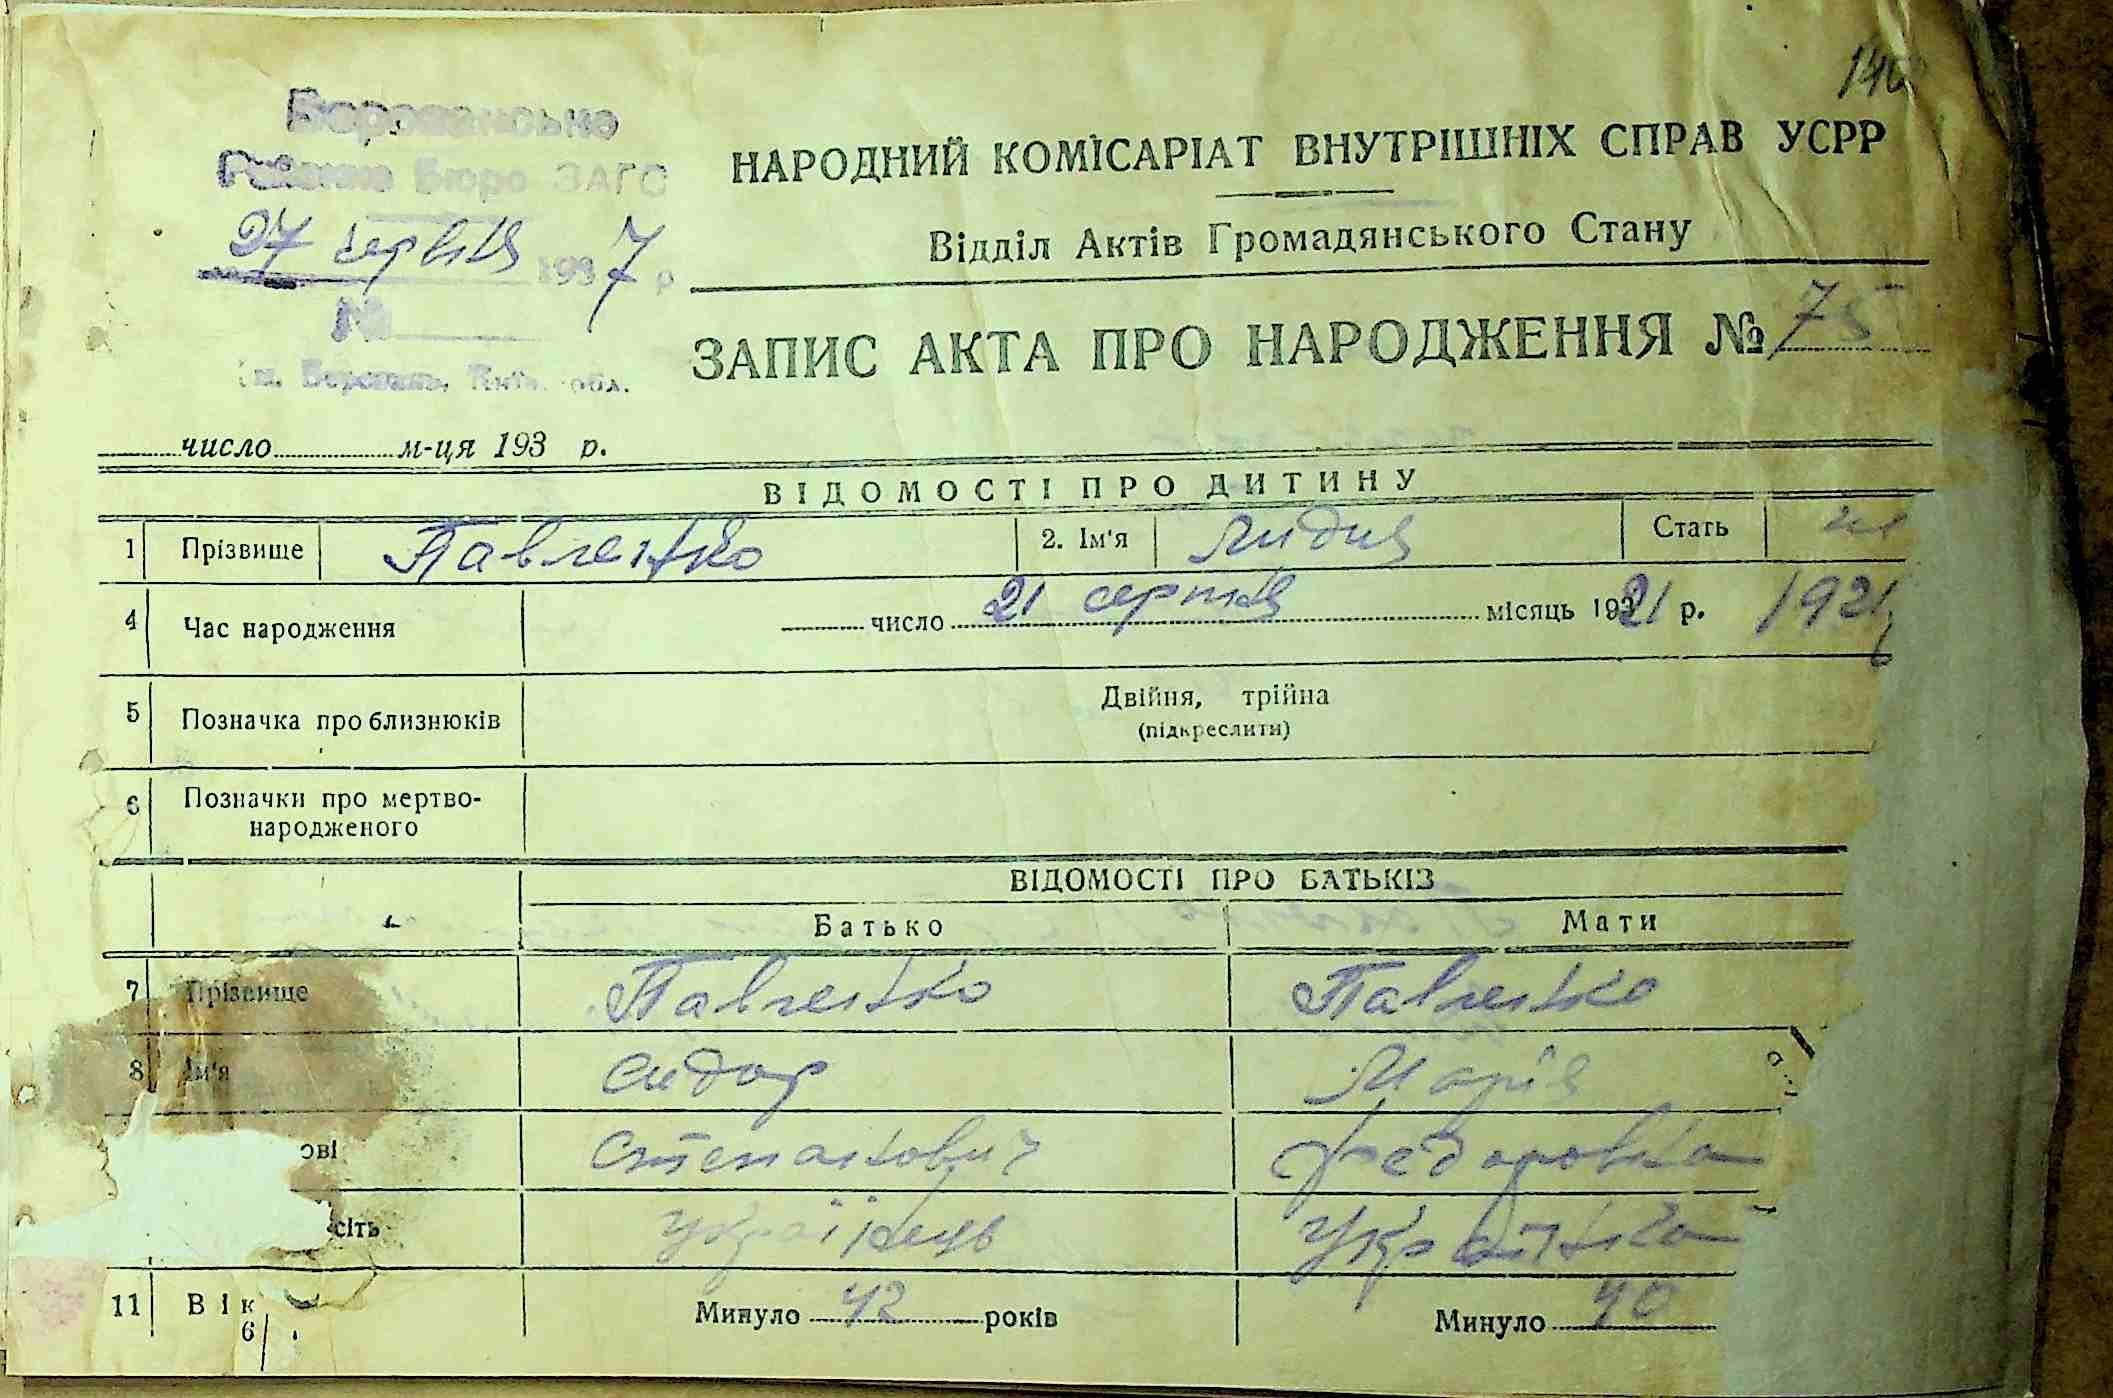 140
Бюро ЗАГС
27 червня 1937 р
№
НАРОДНИЙ КОМІСАРІАТ ВНУТРІШНІХ СПРАВ УСРР
Відділ Актів Громадянського Стану
ЗАПИС АКТА ПРО НАРОДЖЕННЯ № 75
число м-ця 193 р.
ВІДОМОСТІ ПРО ДИТИНУ
1 Прізвище Павленко 2. Ім'я Лидия Стать
4 Час народження число 21 серпня місяць 1921 р. 1921
5 Позначка про близнюків Двійня, трійна
(підкреслити)
6 Позначки про мертво-
народженого
ВІДОМОСТІ ПРО БАТЬКІЗ
Батько Мати
7 Прізвище Павленко Павленко
8 Ім'я Сидор Марія
ові Степанович Федоровна
сіть Українець Українка
11 Вік Минуло 42 років Минуло 40
6